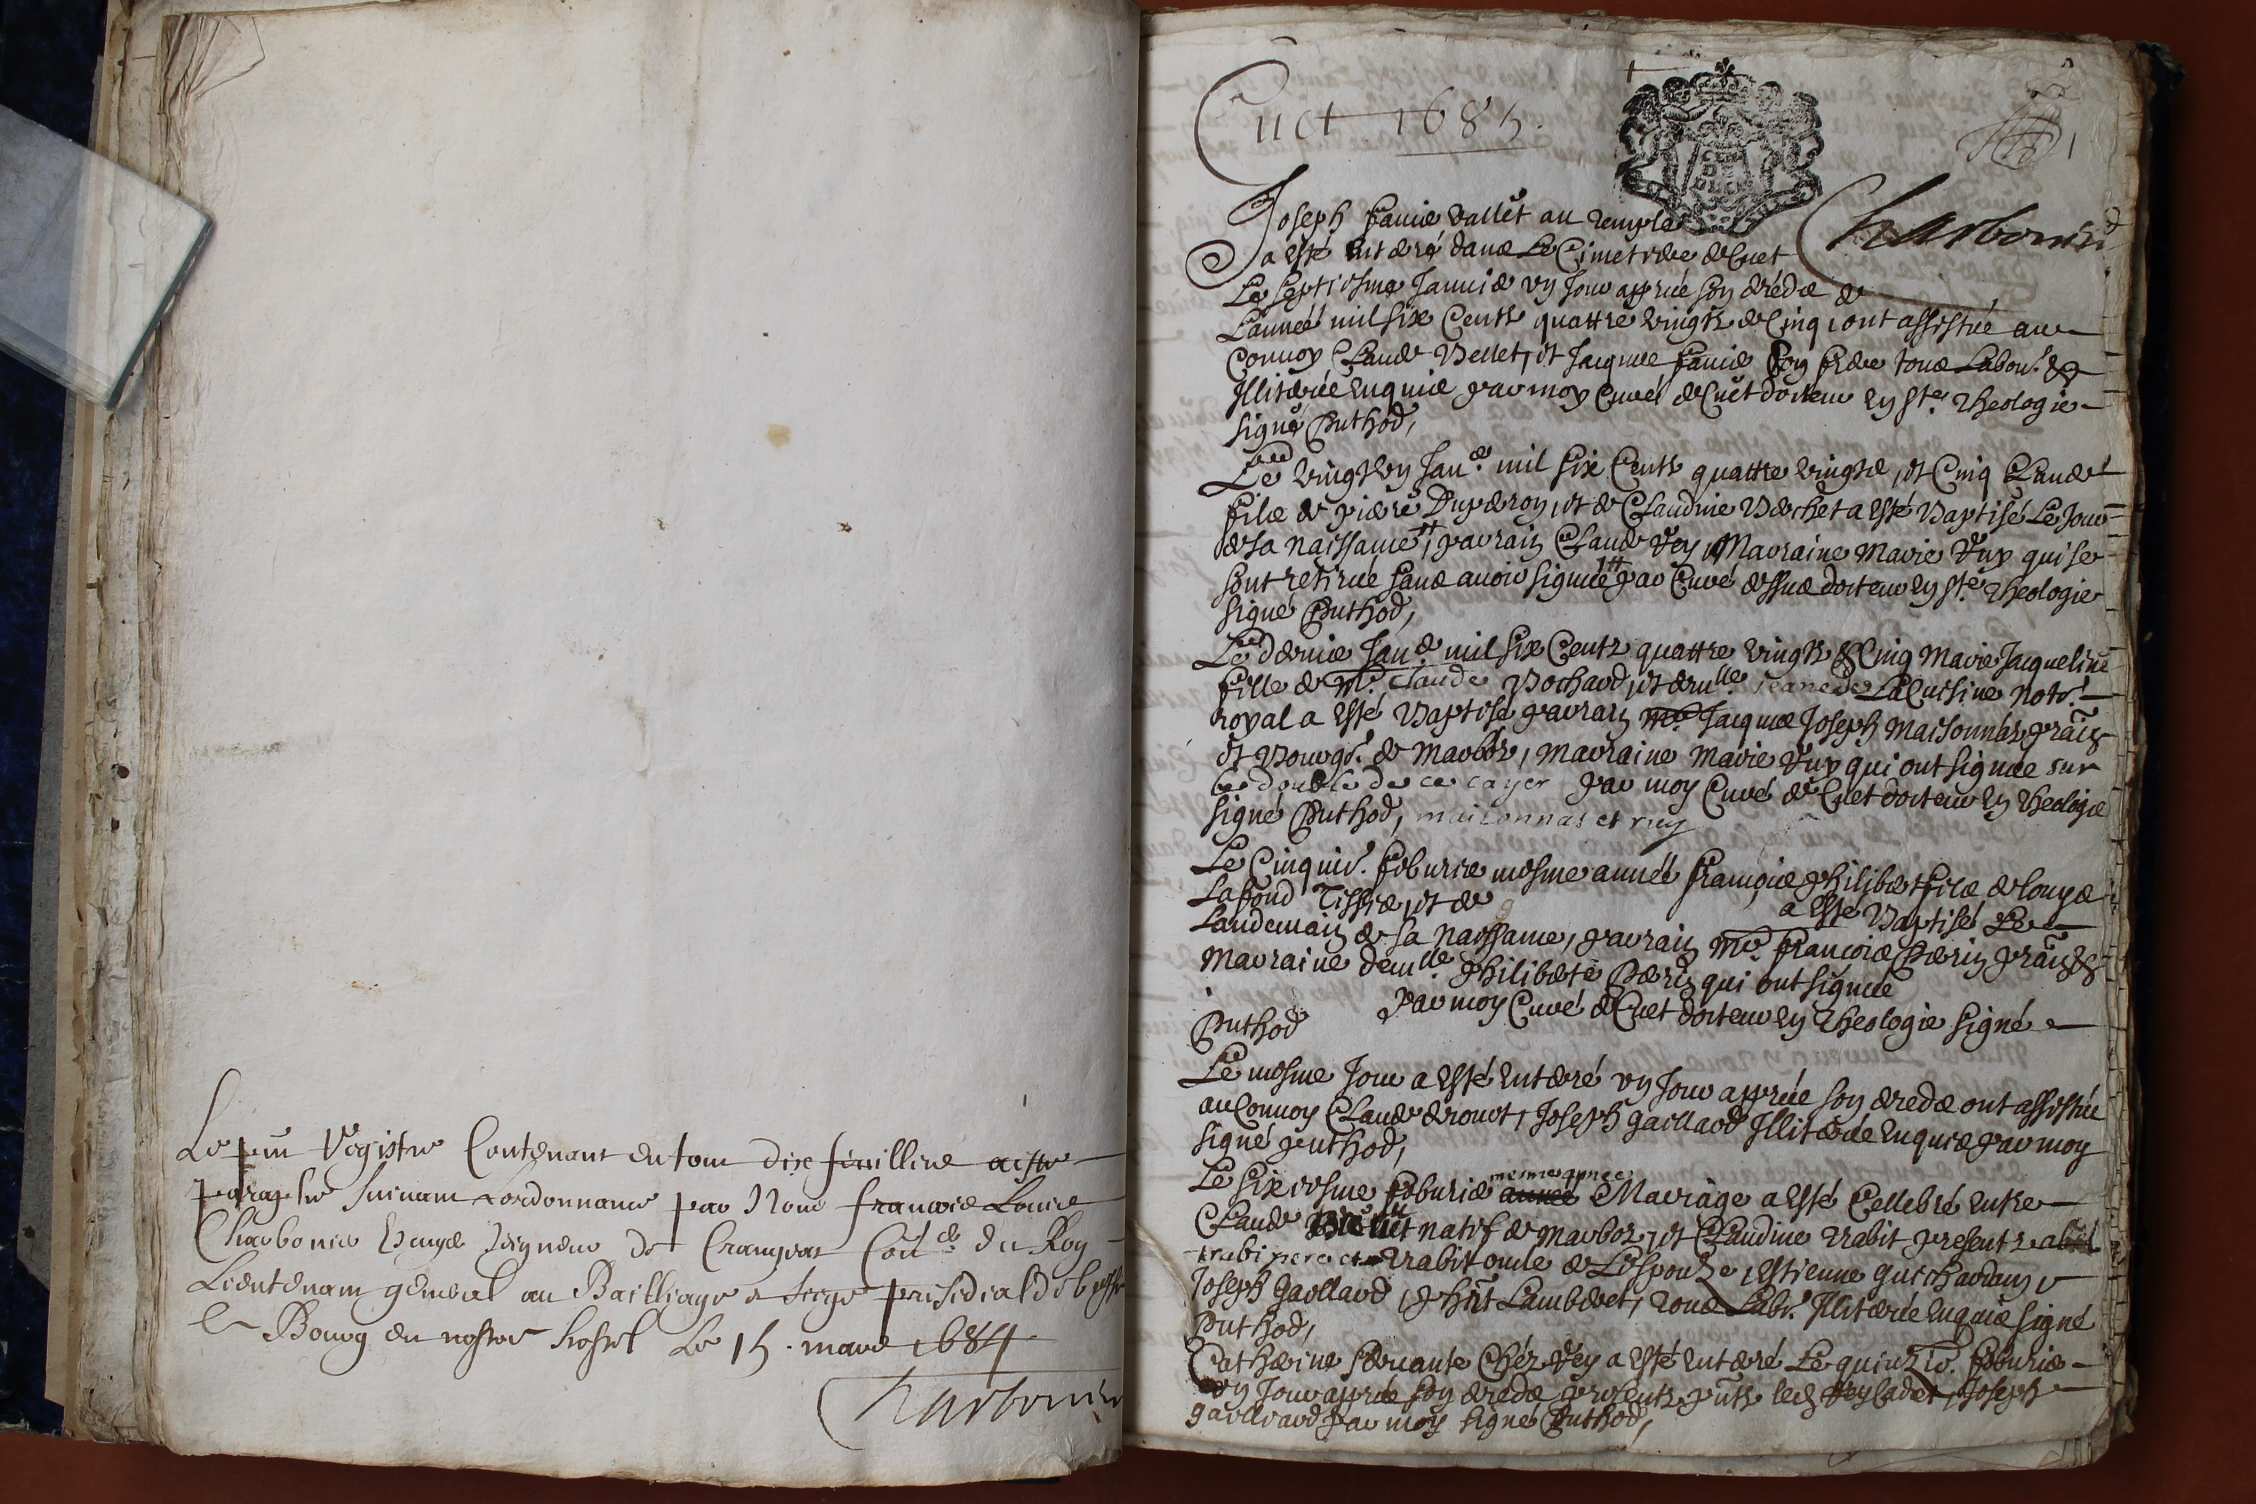 Le pnt Registre Contenant en tout dix feuilliers a esté
paraphé suivant l'ordonnance par Nous francois Louis
Charbonier Seigneur de Crangeat Con.er du Roy
Lieutenant general au Bailliage et siege presidial de bresse
a Bourg en nostre hostel Le 15. mars 1684
Charbonier
Cuet 1685.
1
CEN
DE
BRESSE
Charbonier
Joseph favier vallet au temple
a esté enterré dans Le Cimetiere de Cuet
Le septiesme Janvier un Jour appres son deces de
L'année mil six Cents quattre vingts & Cinq, ont assistés au
Convoy Claude Vellet, et Jacques favier son frere tous Labou.rs &
Illiterés enquis par moy Curé de Cuet docteur en ste Theologie
signé Buthod,
Le vingt un Jan.er mil six Cents quattre vingts, et Cinq Claude
fils de pierre Duperon, et de Claudine Vechet a esté Baptisé Le Jour
de sa naissance, parrain Claude Rey, Marraine Marie Ruy qui se
sont retirés sans avoir signés par Curé dessus docteur en ste Theologie
signé Buthod,
Le dernier Jan.er mil six Cents quattre vingts & Cinq Marie Jacqueline
fille de Mr. Claude Bochard, et de
Jeanne de La Cuisine not.re
royal a esté Baptisé parrain Mr. Jacques Joseph Maisonnas
et Bourgs. de Marboz, marraine Marie Ruy qui ont signés sur
le double de ce cayer par moy Curé de Cuet docteur en Theologie
signé Buthod, maisonnas et ruy
Le Cinquie. febvrier mesme année françois philibert fils de Louys
Lafond Tissier, et de
a esté Baptisé Le
Landemain de sa naissance, parrain Mr. francois Perrin
Marraine demlle. philiberte Perrin qui ont signés
par moy Curé de Cuet docteur en Theologie signé
Buthod
Le mesme Jour a esté enterré un Jour appres son deces ont assistés
au Convoy Claude drouot, Joseph gaillard Illiterés enquis par moy
signé Buthod,
Le sixiesme febvrier mesme année Mariage a esté Cellebré entre
Claude natif de Marboz, et Claudine trabit presents
trabit oncle de L'espouse, Estienne guichardan,
Joseph gaillard, Lambert, tous Labr. Illiterés enquis signé
Buthod,
Catherine servante Chéz Rey a esté enterré Le quinzie. febvrier
un Jour appres son deces presents Rey Cadet, Joseph
gaillard par moy signé Buthod,